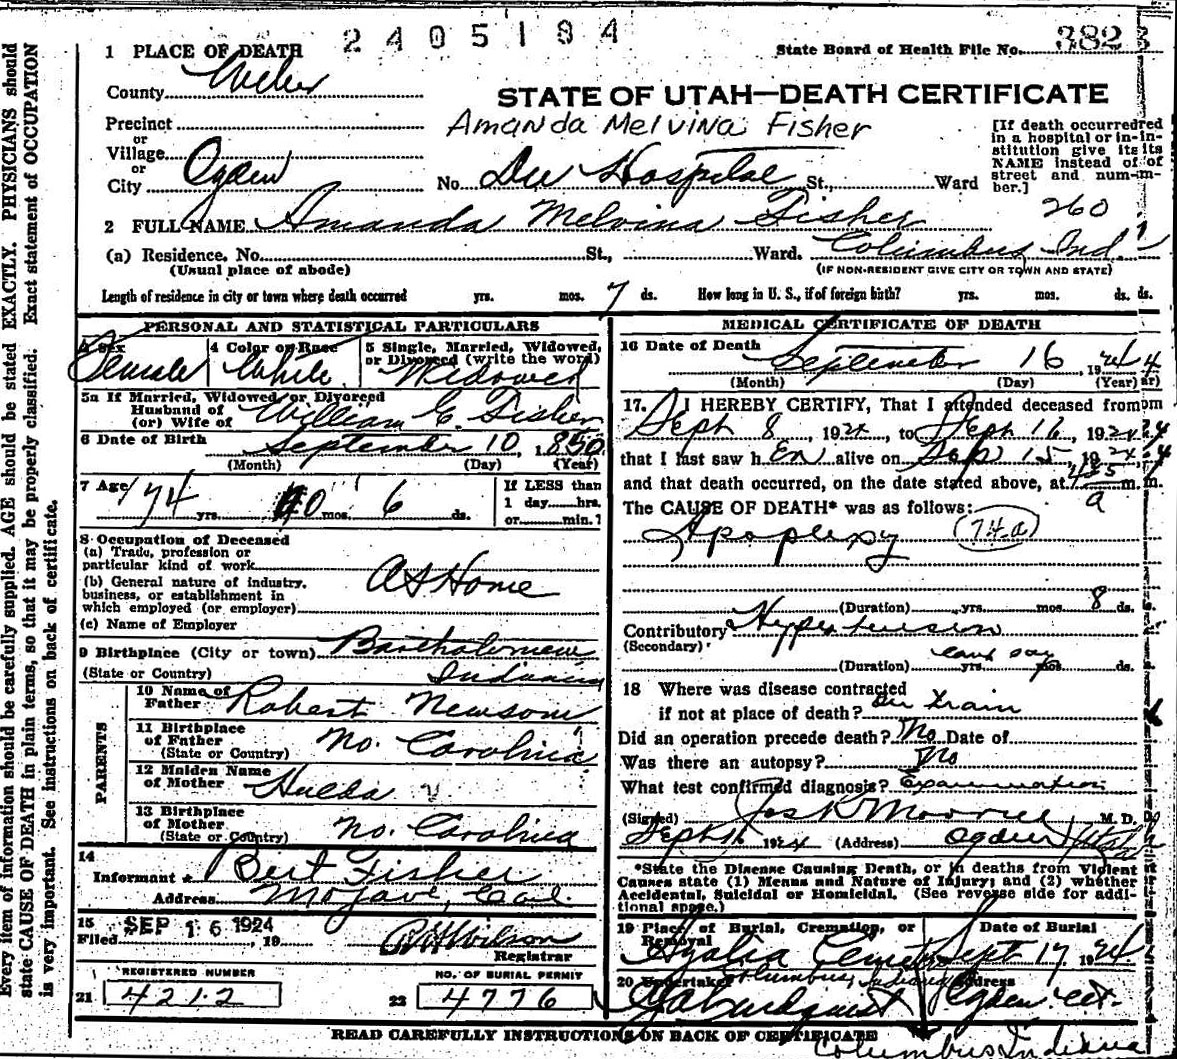 2405184
1 PLACE OF DEATH
State Board of Health File No. 382
County Weber
STATE OF UTAH—DEATH CERTIFICATE
Precinct
Amanda Melvina Fisher
or
Village
or
City Ogden
No. Dee Hospital St., Ward
[If death occurredred
in a hospital or in-in-
stitution give its its
NAME instead of of
street and num-m-
ber.]
260
2 FULL NAME Amanda Melvina Fisher
(a) Residence. No. St., Ward. Columbus, Ind.
(Usual place of abode) (IF NON-RESIDENT GIVE CITY OR TOWN AND STATE)
Length of residence in city or town where death occurred yrs. mos. 7 ds. How long in U. S., if of foreign birth? yrs. mos. ds. ds.
PERSONAL AND STATISTICAL PARTICULARS
3 Sex Female
4 Color or Race White
5 Single, Married, Widowed,
or Divorced (write the word)
Widowed
5a If Married, Widowed or Divorced
Husband of
(or) Wife of William E. Fisher
6 Date of Birth September 10, 1850
(Month) (Day) (Year)
7 Age 74 yrs. 0 mos. 6 ds.
If LESS than
1 day hrs.
or min.?
8 Occupation of Deceased
(a) Trade, profession or
particular kind of work
At Home
(b) General nature of industry,
business, or establishment in
which employed (or employer)
(c) Name of Employer
9 Birthplace (City or town) Bartholomew
(State or Country) Indiana
PARENTS
10 Name of
Father Robert Newsom
11 Birthplace
of Father No. Carolina
(State or Country)
12 Maiden Name
of Mother Hulda
13 Birthplace
of Mother No. Carolina
(State or Country)
14
Informant Bert Fisher
Address Mojave, Cal.
15
Filed SEP 16 1924, 19
R H Wilson
Registrar
REGISTERED NUMBER
21 4212
NO. OF BURIAL PERMIT
22 4776
MEDICAL CERTIFICATE OF DEATH
16 Date of Death
September 16, 1924 4
(Month) (Day) (Year) ar)
17. I HEREBY CERTIFY, That I attended deceased from om
Sept 8, 1924, to Sept 16, 1924 4
that I last saw h er alive on Sep 15, 1924
and that death occurred, on the date stated above, at 4 35 a m. m.
The CAUSE OF DEATH* was as follows:
Apoplexy (74a)
(Duration) yrs. mos. 8 ds.
Contributory Hypertension
(Secondary)
cant say
(Duration) yrs. mos. ds.
18 Where was disease contracted
if not at place of death? On train
Did an operation precede death? No Date of
Was there an autopsy? No
What test confirmed diagnosis? Examination
(Signed) Jos R Morrell M. D.
Sept 16 1924 (Address) Ogden Utah
*State the Disease Causing Death, or in deaths from Violent
Causes state (1) Means and Nature of Injury; and (2) whether
Accidental, Suicidal or Homicidal. (See reverse side for addi-
tional space.)
19 Place of Burial, Cremation, or
Removal
Azalia Cemetery
Columbus, Indiana
Date of Burial
Sept 17 1924
20 Undertaker
Lindquist Ogden Ut.
READ CAREFULLY INSTRUCTIONS ON BACK OF CERTIFICATE
Columbus Indiana
Every item of information should be carefully supplied. AGE should be stated EXACTLY. PHYSICIANS should
state CAUSE OF DEATH in plain terms, so that it may be properly classified. Exact statement of OCCUPATION
is very important. See instructions on back of certificate.